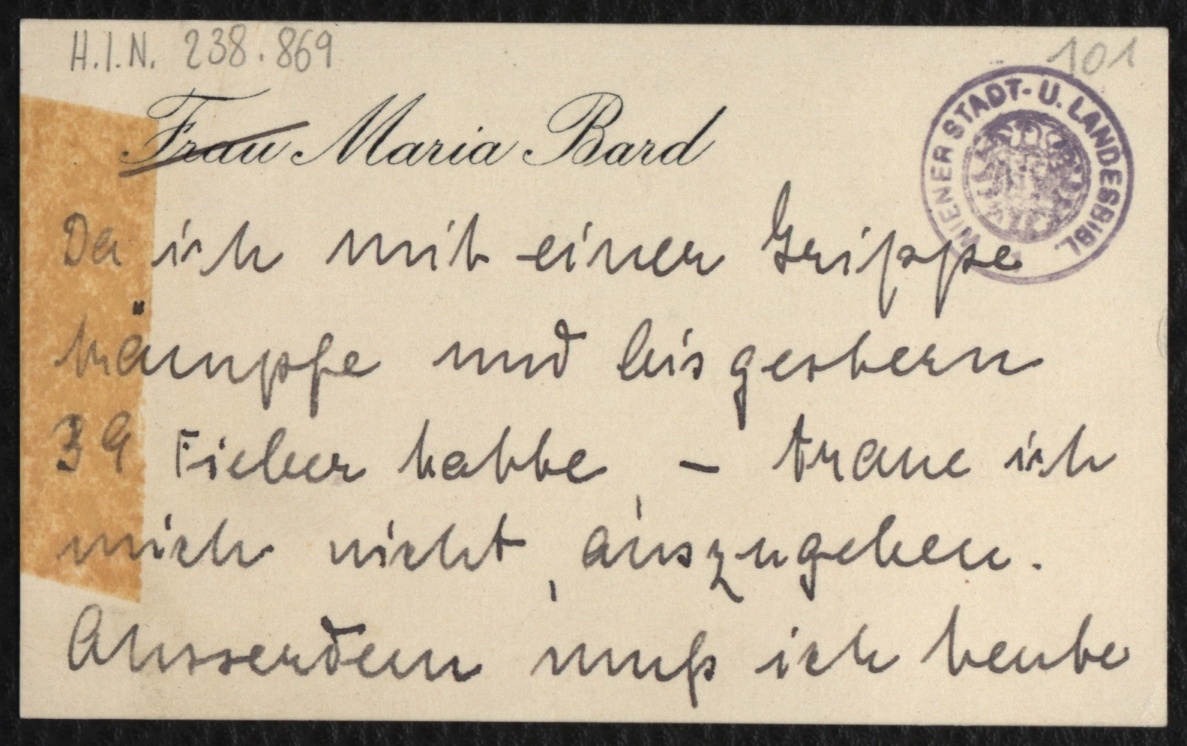 H.I.N. 238.869
101
WIENER STADT- U. LANDESBIBL.
Frau Maria Bard
Da ich mit einer Grippe
kämpfe und bis gestern
39 Fieber hatte, – traue ich
mich nicht, auszugehen.
Ausserdem muß ich heute